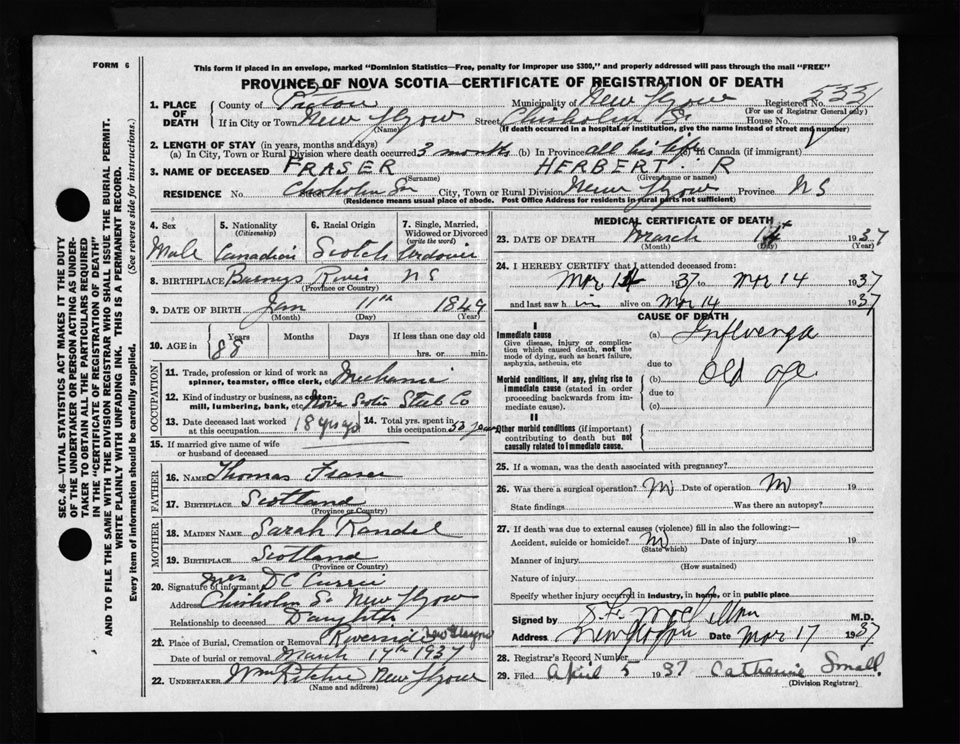 FORM 6
This form if placed in an envelope, marked "Dominion Statistics—Free, penalty for improper use $300," and properly addressed will pass through the mail "FREE"
PROVINCE OF NOVA SCOTIA—CERTIFICATE OF REGISTRATION OF DEATH
1. PLACE OF DEATH County of Pictou Municipality of New Glasgow Registered No. 533
(For use of Registrar General only)
If in City or Town New Glasgow Street Chisholm St House No.
(Name) (If death occurred in a hospital or institution, give the name instead of street and number)
2. LENGTH OF STAY (in years, months and days)
(a) In City, Town or Rural Division where death occurred 3 months (b) In Province all his life (c) In Canada (if immigrant)
3. NAME OF DECEASED FRASER HERBERT R
(Surname) (Given name or names)
RESIDENCE No. Chisholm St City, Town or Rural Division New Glasgow Province NS
(Residence means usual place of abode. Post Office Address for residents in rural parts not sufficient)
4. Sex 5. Nationality (Citizenship) 6. Racial Origin 7. Single, Married, Widowed or Divorced (write the word)
Male Canadian Scotch
8. BIRTHPLACE Barneys River NS
(Province or Country)
9. DATE OF BIRTH Jan 11th 1849
(Month) (Day) (Year)
10. AGE in Years Months Days If less than one day old
88 hrs. or min.
OCCUPATION
11. Trade, profession or kind of work as spinner, teamster, office clerk, etc. Mechanic
12. Kind of industry or business, as cotton-mill, lumbering, bank, etc. Nova Scotia Steel Co
13. Date deceased last worked at this occupation 18 yrs ago 14. Total yrs. spent in this occupation years
15. If married give name of wife or husband of deceased
FATHER
16. NAME Thomas Fraser
17. BIRTHPLACE Scotland
(Province or Country)
MOTHER
18. MAIDEN NAME Sarah
19. BIRTHPLACE Scotland
(Province or Country)
20. Signature of informant Mrs D C Currie
Address Chisholm St New Glasgow
Relationship to deceased Daughter
21. Place of Burial, Cremation or Removal Riverside New Glasgow
Date of burial or removal March 17th 1937
22. UNDERTAKER Wm Ritchie New Glasgow
(Name and address)
MEDICAL CERTIFICATE OF DEATH
23. DATE OF DEATH March 1937
(Month) (Day) (Year)
24. I HEREBY CERTIFY that I attended deceased from:
Mar 1937 to Mar 14 1937
and last saw h im alive on Mar 14 1937
CAUSE OF DEATH
I
Immediate cause (a) Influenza
Give disease, injury or complication which caused death, not the mode of dying, such as heart failure, asphyxia, asthenia, etc
due to
Morbid conditions, if any, giving rise to immediate cause (stated in order proceeding backwards from immediate cause).
(b) Old age
due to
(c)
II
Other morbid conditions (if important) contributing to death but not causally related to immediate cause.
25. If a woman, was the death associated with pregnancy?
26. Was there a surgical operation? No Date of operation No 19
State findings Was there an autopsy?
27. If death was due to external causes (violence) fill in also the following:—
Accident, suicide or homicide? No Date of injury 19
(State which)
Manner of injury
(How sustained)
Nature of injury
Specify whether injury occurred in industry, in home, or in public place
Signed by M.D.
Address New Glasgow Date Mar 17 1937
28. Registrar's Record Number
29. Filed April 5 1937 Catherine Small
(Division Registrar)
SEC. 46—VITAL STATISTICS ACT MAKES IT THE DUTY
OF THE UNDERTAKER OR PERSON ACTING AS UNDER-
TAKER TO OBTAIN ALL THE PARTICULARS REQUIRED
IN THE "CERTIFICATE OF REGISTRATION OF DEATH"
AND TO FILE THE SAME WITH THE DIVISION REGISTRAR WHO SHALL ISSUE THE BURIAL PERMIT.
WRITE PLAINLY WITH UNFADING INK. THIS IS A PERMANENT RECORD.
Every item of information should be carefully supplied. (See reverse side for instructions.)